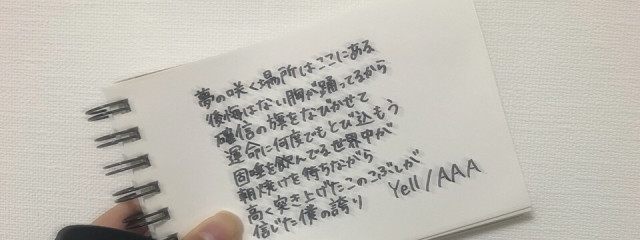 夢の咲く場所はここにある
後悔はない胸が踊ってるから
確信の旗をなびかせて
運命に何度でもとび込もう
固唾を飲んでる世界中が
朝焼けを待ちながら
高く突き上げたこのこぶしが
信じた僕の誇り
Yell/AAA